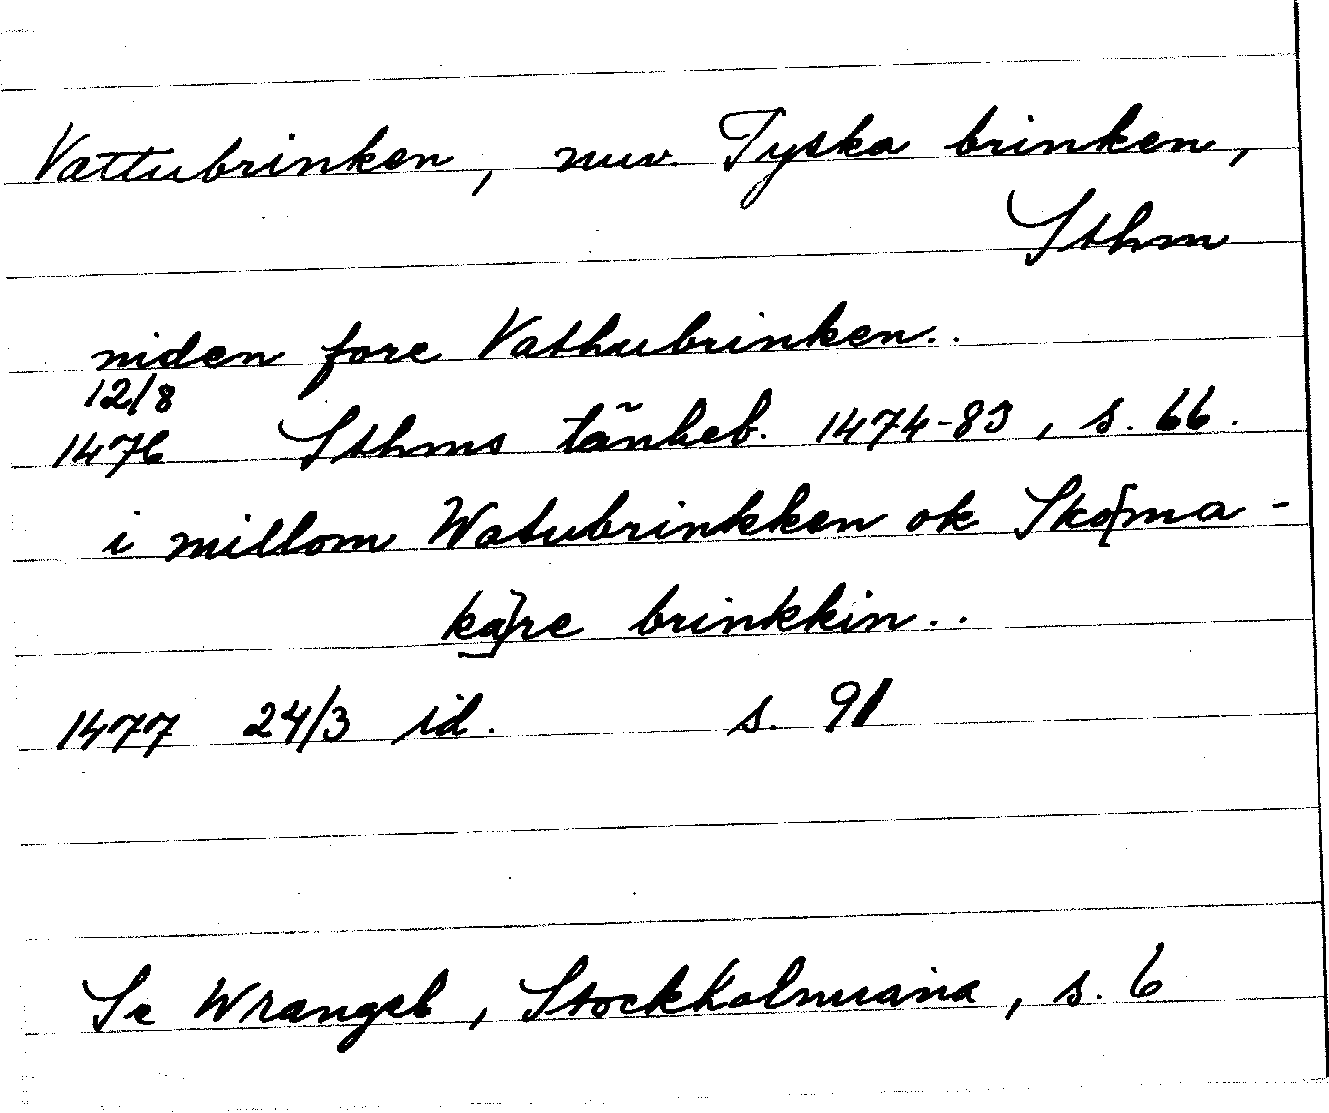 Vattubrinken, nuv. Tyska brinken,
Sthm
niden fore Vathubrinken..
12/8
1476 Sthms tänkeb. 1474-83, s. 66.
i millom Watubrinkken ok Sko[ma-
ka]re brinkkin..
1477 24/3 id. s. 91
Se Wrangel, Stockholmiana, s. 6